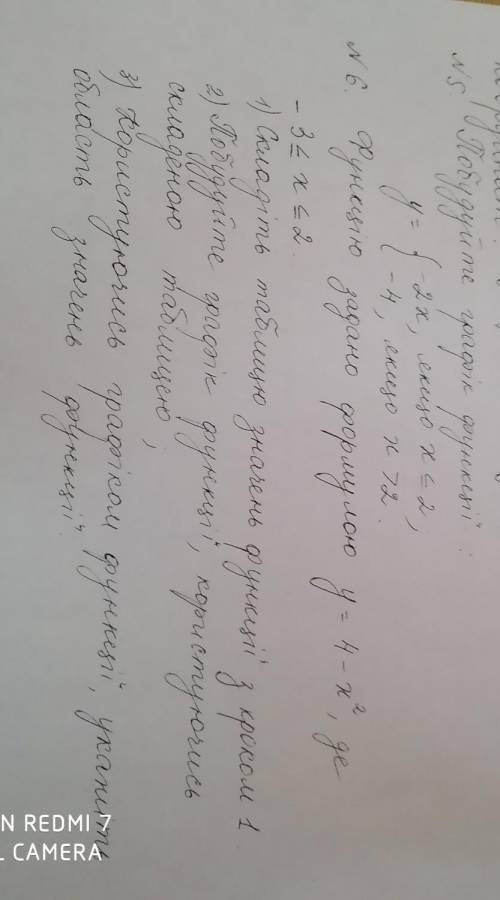 N5. Побудуйте графік функції:
y = { -2x, якщо x ≤ 2,
-4, якщо x > 2.
N6. Функцію задано формулою y = 4 - x², де
-3 ≤ x ≤ 2.
1) Складіть таблицю значень функції з кроком 1.
2) Побудуйте графік функції, користуючись
складеною таблицею;
3) Користуючись графіком функції, укажіть
область значень функції.
N REDMI 7
L CAMERA